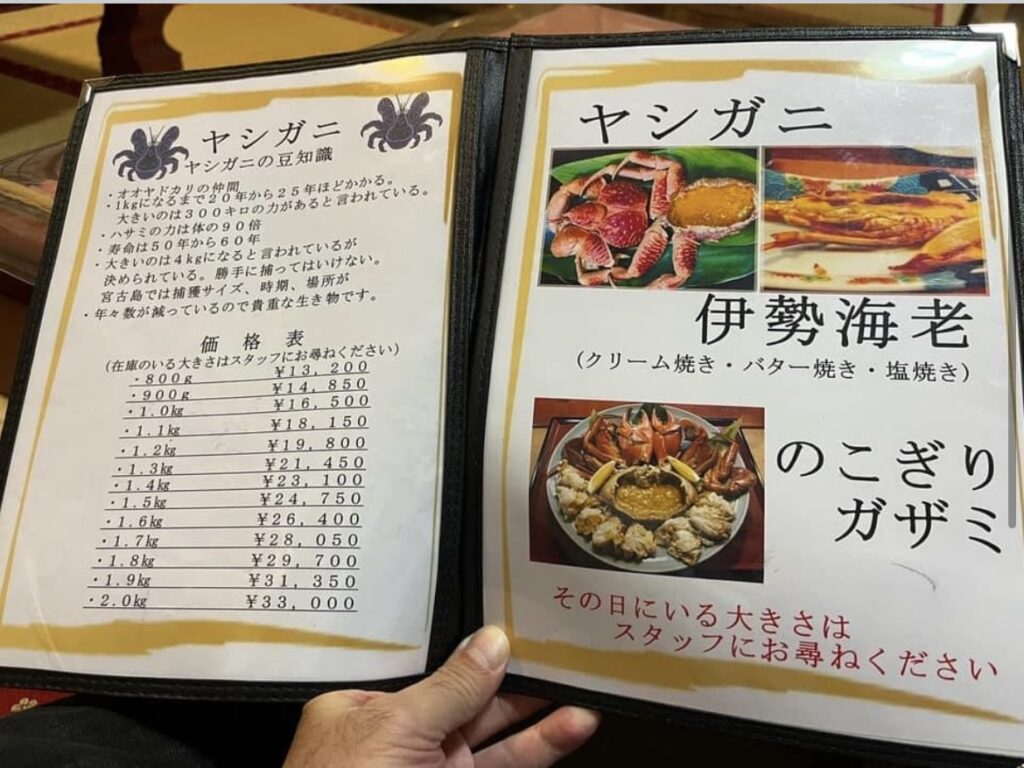 ヤシガニ
ヤシガニの豆知識
・オオヤドカリの仲間
・1kgになるまで20年から25年ほどかかる。
大きいのは300キロの力があると言われている。
・ハサミの力は体の90倍
・寿命は50年から60年
・大きいのは4kgになると言われているが
決められている。勝手に捕ってはいけない。
宮古島では捕獲サイズ、時期、場所が
・年々数が減っているので貴重な生き物です。
価格表
(在庫のいる大きさはスタッフにお尋ねください)
・800g ¥13,200
・900g ¥14,850
・1.0kg ¥16,500
・1.1kg ¥18,150
・1.2kg ¥19,800
・1.3kg ¥21,450
・1.4kg ¥23,100
・1.5kg ¥24,750
・1.6kg ¥26,400
・1.7kg ¥28,050
・1.8kg ¥29,700
・1.9kg ¥31,350
・2.0kg ¥33,000
ヤシガニ
伊勢海老
(クリーム焼き・バター焼き・塩焼き)
のこぎり
ガザミ
その日にいる大きさは
スタッフにお尋ねください